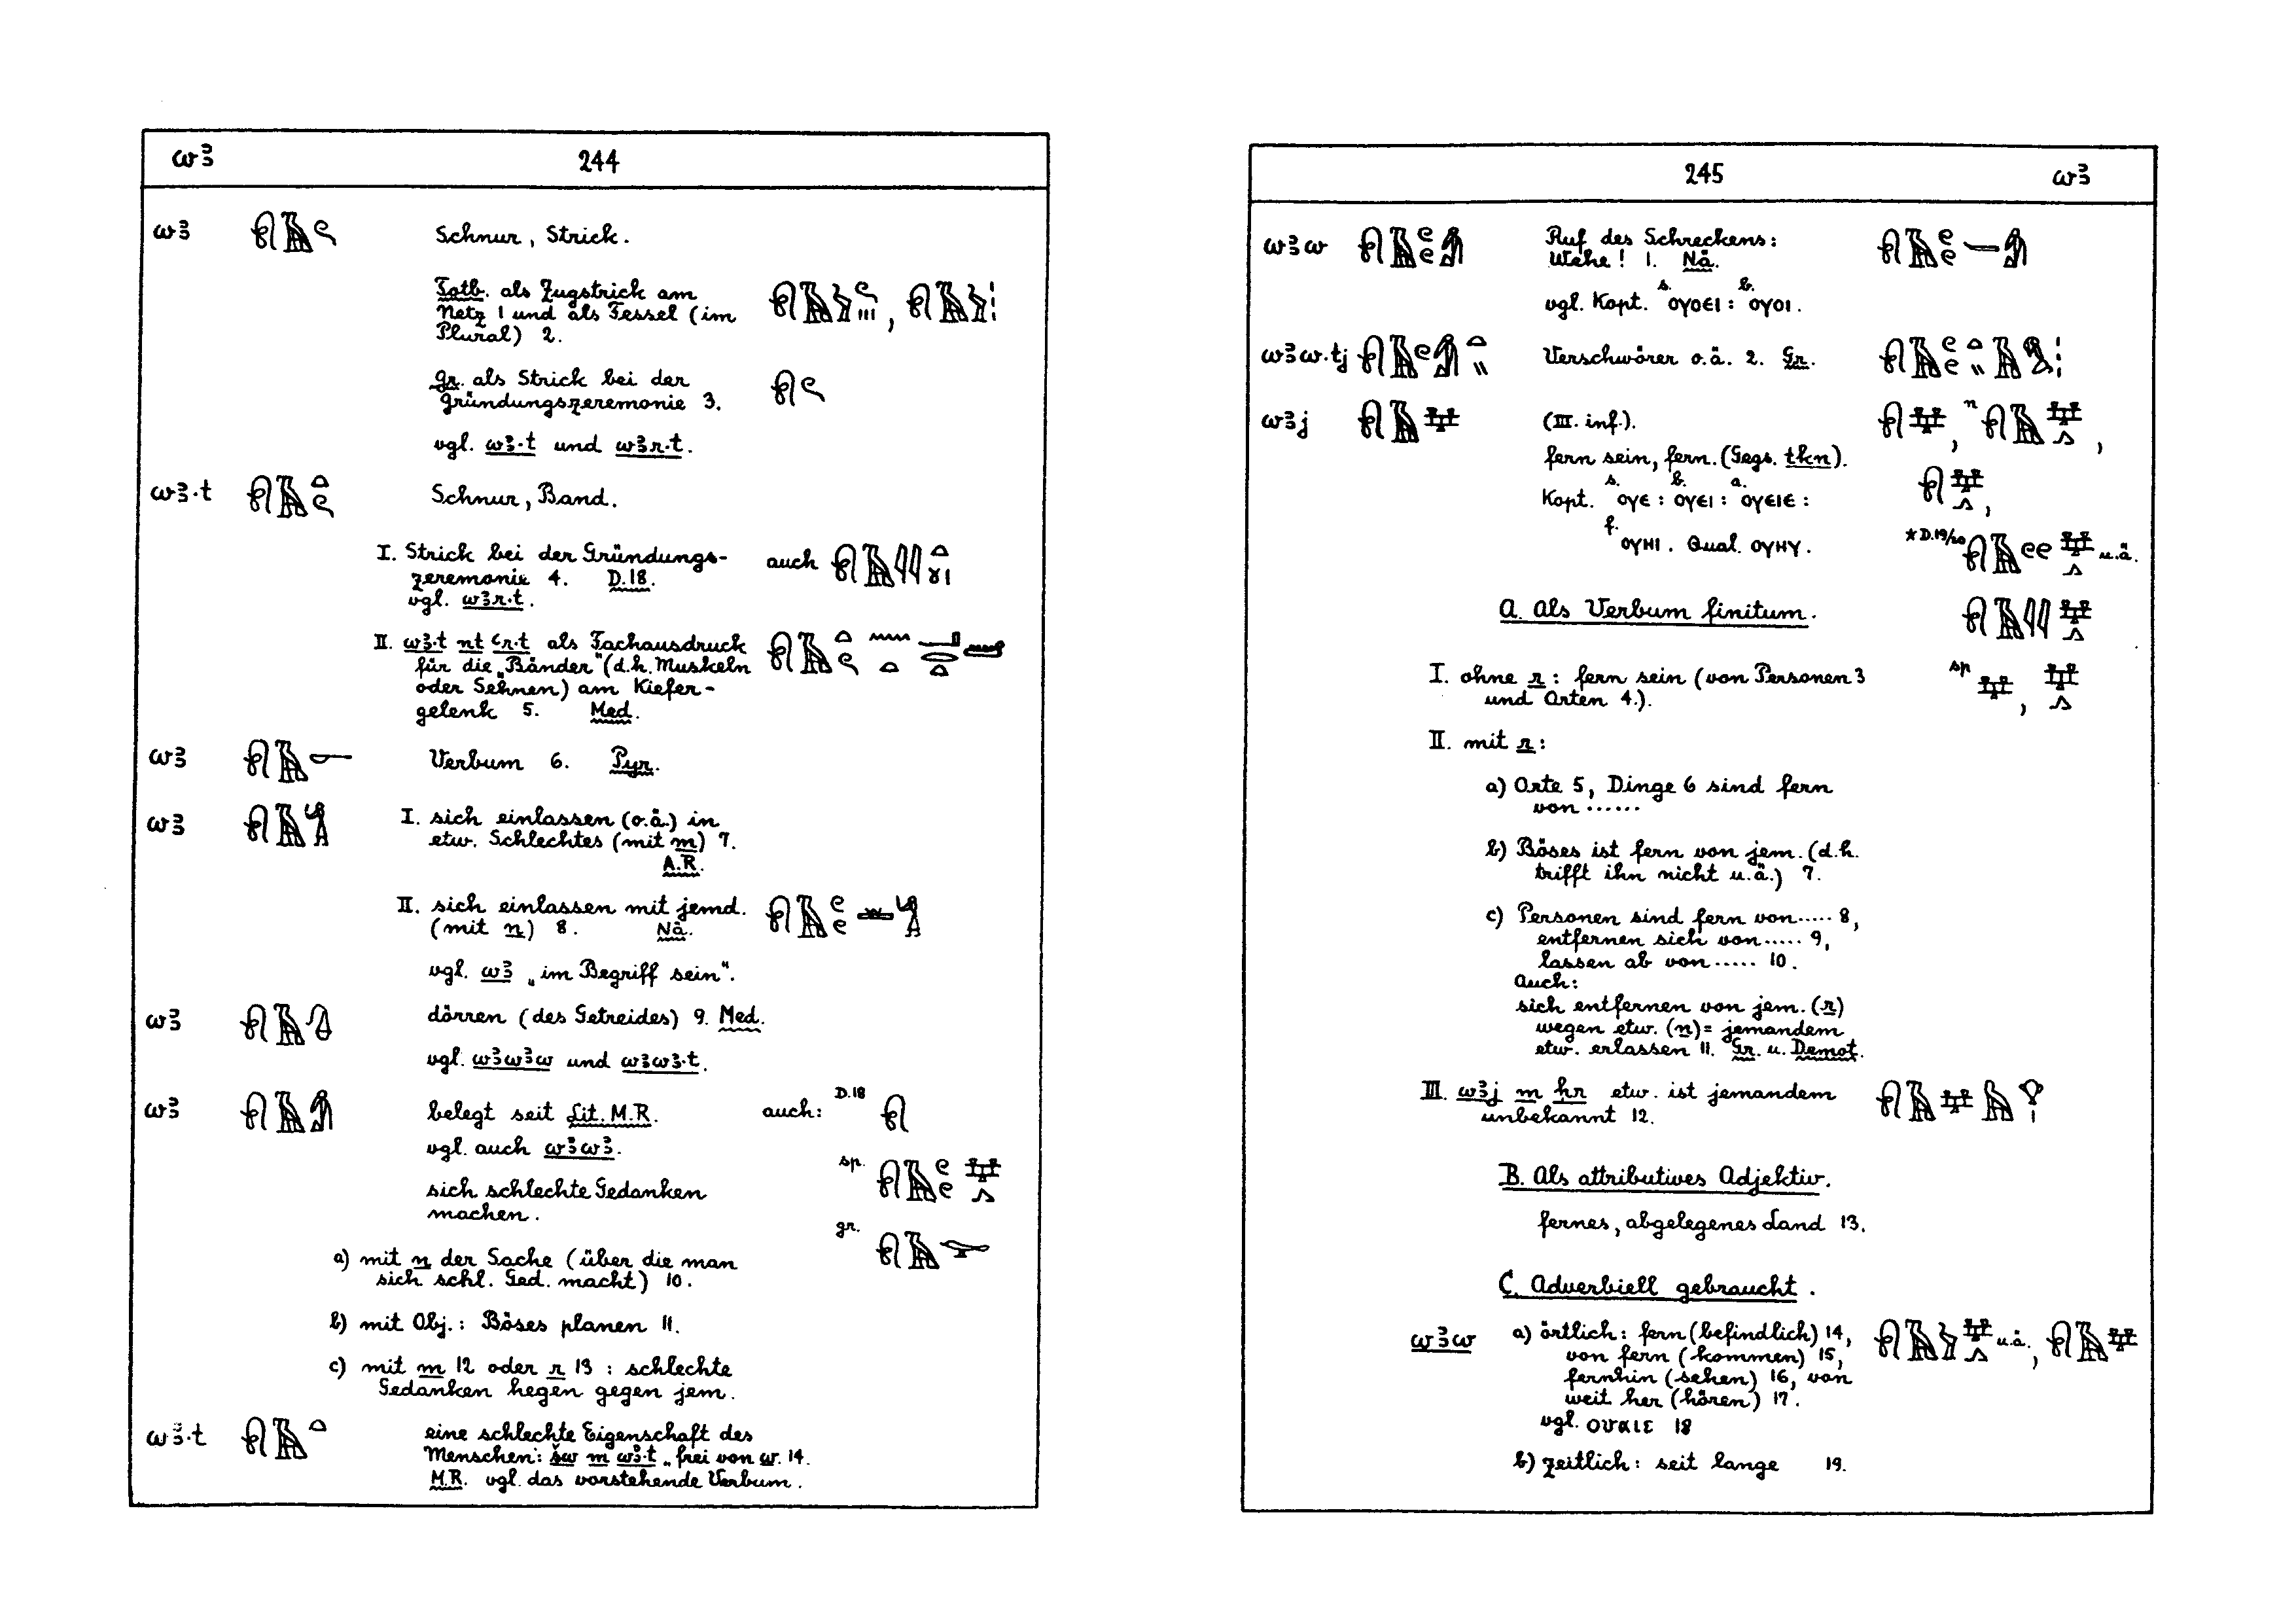 wꜣ 244
wꜣ Schnur, Strick.
Totb. als Zugstrick am
Netz 1 und als Fessel (im
Plural) 2.
gr. als Strick bei der
Gründungszeremonie 3.
vgl. wꜣ·t und wꜣr·t.
wꜣ·t Schnur, Band.
I. Strick bei der Gründungs- auch
zeremonie 4. D.18.
vgl. wꜣr·t.
II. wꜣ·t nt ꜥr·t als Fachausdruck
für die „Bänder" (d.h. Muskeln
oder Sehnen) am Kiefer-
gelenk 5. Med.
wꜣ Verbum 6. Pyr.
wꜣ I. sich einlassen (o.ä.) in
etw. Schlechtes (mit m) 7.
A.R.
II. sich einlassen mit jemd.
(mit n) 8. Nä.
vgl. wꜣ „im Begriff sein".
wꜣ dörren (des Getreides) 9. Med.
vgl. wꜣwꜣw und wꜣwꜣ·t.
wꜣ belegt seit Lit. M.R. auch: D.18
vgl. auch wꜣwꜣ.
sp.
sich schlechte Gedanken
machen.
gr.
a) mit n der Sache (über die man
sich schl. Ged. macht) 10.
b) mit Obj.: Böses planen 11.
c) mit m 12 oder r 13 : schlechte
Gedanken hegen gegen jem.
wꜣ·t eine schlechte Eigenschaft des
Menschen: šw m wꜣ·t „frei von w. 14.
M.R. vgl. das vorstehende Verbum.
245 wꜣ
wꜣw Ruf des Schreckens:
Wehe! 1. Nä.
s. b.
vgl. Kopt. ⲟⲩⲟⲉⲓ : ⲟⲩⲟⲓ.
wꜣw·tj Verschwörer o.ä. 2. Gr.
wꜣj (III. inf.). , n ,
fern sein, fern. (Gegs. tkn).
s. b. a.
Kopt. ⲟⲩⲉ : ⲟⲩⲉⲓ : ⲟⲩⲉⲓⲉ : ,
f.
ⲟⲩⲏⲓ. Qual. ⲟⲩⲏⲩ. *D.19/20 u.ä.
A. Als Verbum finitum.
I. ohne r : fern sein (von Personen 3 sp ,
und Orten 4.).
II. mit r :
a) Orte 5, Dinge 6 sind fern
von ......
b) Böses ist fern von jem. (d.h.
trifft ihn nicht u.ä.) 7.
c) Personen sind fern von..... 8,
entfernen sich von..... 9,
lassen ab von..... 10.
Auch:
sich entfernen von jem. (r)
wegen etw. (n) = jemandem
etw. erlassen 11. Gr. u. Demot.
III. wꜣj m ḥr etw. ist jemandem
unbekannt 12.
B. Als attributives Adjektiv.
fernes, abgelegenes Land 13.
C. Adverbiell gebraucht.
wꜣw a) örtlich: fern (befindlich) 14, u.ä. ,
von fern (kommen) 15,
fernhin (sehen) 16, von
weit her (hören) 17.
vgl. ⲟⲩⲁⲓⲉ 18
b) zeitlich: seit lange 19.